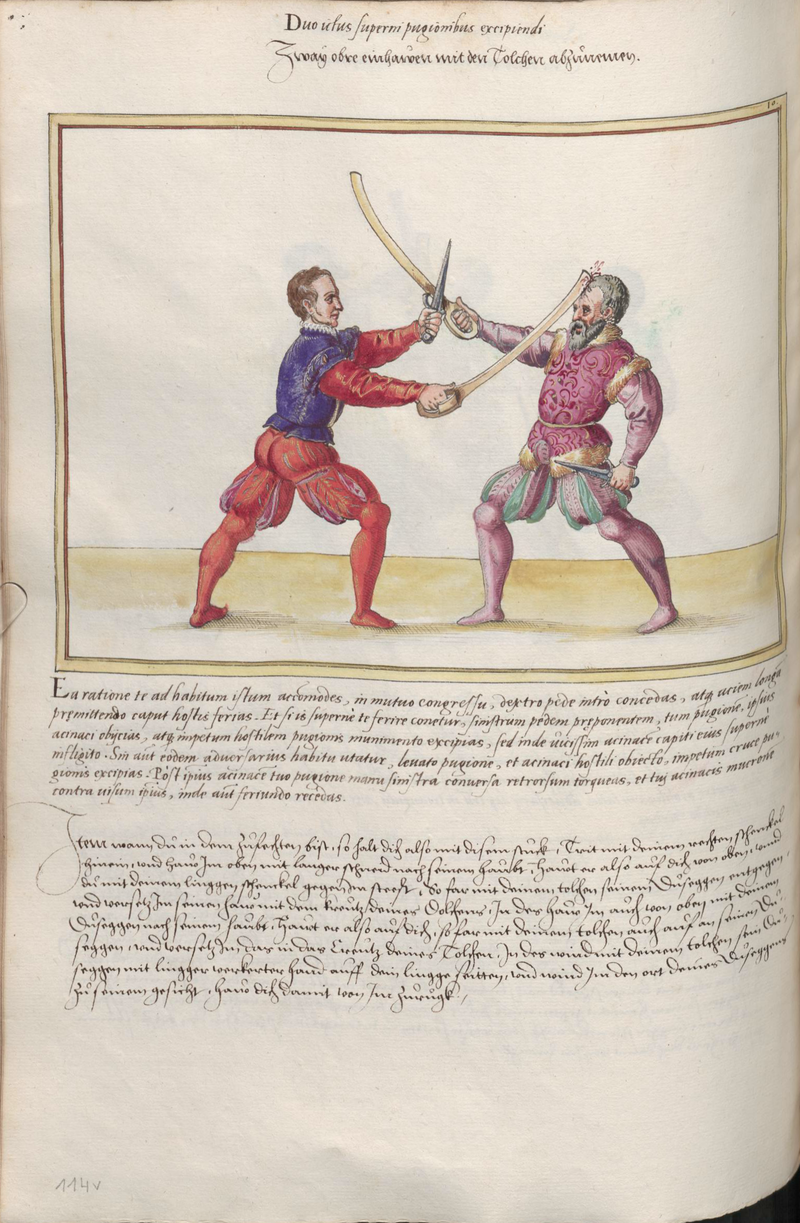 Duo ictus superni pugionibus excipiendi
Zway obre einhawen mit den Tolchen abzunemen.
10.
Ea ratione te ad habitum istum accomodes, in mutuo congressu, dextro pede intrò concedas, atq aciem longã
premittendo caput hostis ferias. Et si is supernè te ferire conetur, sinistrum pedem preponentem, tum pugione, ipsius
acinaci obiectus, atq impetum hostilem pugionis munimento excipias, sed inde vicissim acinace capiti eius supernè
infligito. Sin aut eodem adversarius habitu utatur, levato pugione, et acinaci hostili obiecto, impetum cruce pu-
gionis excipias. Post ipius acinacẽ tuo pugione manu sinistra conversa retrorsum torqueas, et tui acinacis mucrone
contra visum ipius, inde aut feriundo recedas.
Item wann du in dem zufechten bist, so halt dich also mit disem stuck, Trit mit deinem rechten schenckel
hinein, vnd haw Im oben mit langer schneid nach seinem haubt, hawt er also auf dich von oben, vnnd
du mit deinem linggen schenckel gegen Im steest, so far mit deinem tolchen seinem Duseggen entgegen,
vnd versetz Im seinen haw mit dem kreutz deines Dolchens, In des haw Im auch von oben mit deinem
Duseggen nach seinem haubt, hawt er also auf dich, so far mit deinem tolchen auch auf an seinen Du
seggen, vnd versetz Im das in das Creutz deines Tolchen, In des wind mit deinem tolchen sein Du
seggen mit lingger verkerter hand auff dein lingge seitten, vnd wind Im den ort deines Duseggens
zu seinem gesicht, haw dich damit von Im zurugk.
114v